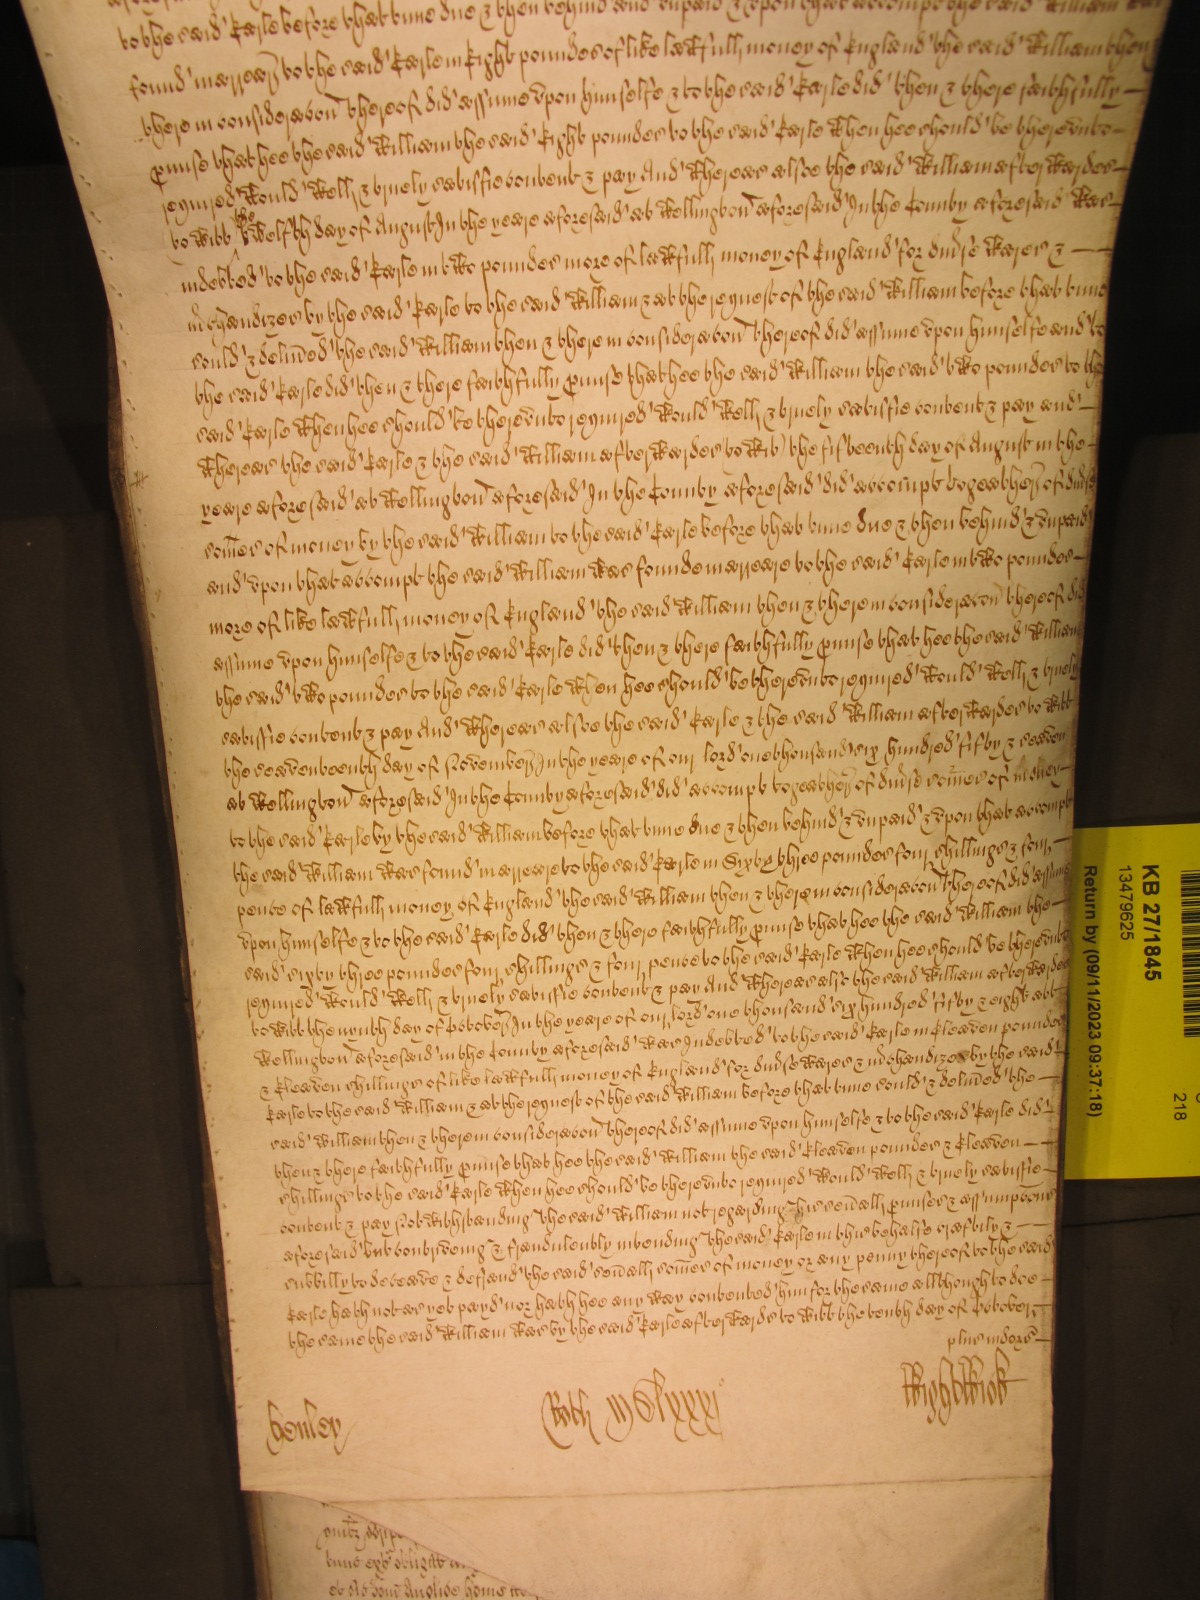 to the said Earle before that time due & then behind and unpaid & upon that accompt the said William was
found in arrear to the said Earle in Eight poundes of like lawfull money of England the said William then &
there in consideracon thereof did assume upon himselfe & to the said Earle did then & there faithfully
pmise that hee the said William the said Eight poundes to the said Earle when hee should be thereunto
required would well & truely satisfie content & pay And whereas alsoe the said William afterwardes
to witt the twelfth day of August In the yeare aforesaid at Wellington aforesaid In the County aforesaid was
indebted to the said Earle in two poundes more of lawfull money of England for divse wares &
mchandizes by the said Earle to the said William & at the request of the said William before that time
sould & delivered the said William then & there in consideracon thereof did assume upon himselfe and to
the said Earle did then & there faithfully pmise that hee the said William the said two poundes to the
said Earle when hee should be thereunto required would well & truely satisfie content & pay and
whereas the said Earle & the said William afterwardes to witt the fifteenth day of August in the
yeare aforesaid at Wellington aforesaid In the County aforesaid did accompt togeather of divse
somes of money by the said William to the said Earle before that time due & then behind & unpaid
and upon that accompt the said William was founde in arreare to the said Earle in two poundes
more of like lawfull money of England the said William then & there in consideracon thereof did
assume upon himselfe & to the said Earle did then & there faithfully pmise that hee the said William
the said two poundes to the said Earle when hee should be thereunto required would well & truely
satisfie content & pay And whereas alsoe the said Earle & the said William afterwardes to witt
the seaventeenth day of November In the yeare of our lord one thousand six hundred fifty & seaven
at Wellington aforesaid In the County aforesaid did accompt togeather of divse somes of money
to the said Earle by the said William before that time due & then behind & unpaid & upon that accompt
the said William was found in arreare to the said Earle in Sixty three poundes four shillinges & four
pence of lawfull money of England the said William then & there in consideracon thereof did assume
upon himselfe & to the said Earle did then & there faithfully pmise that hee the said William the
said sixty three poundes four shillinges & four pence to the said Earle when hee should be thereunto
required would well & truely satisfie content & pay And whereas alsoe the said William afterwardes
to witt the nynth day of October In the yeare of our lord one thousand six hundred fifty & eight att
Wellington aforesaid in the County aforesaid was Indebted to the said Earle in Eleaven poundes
& Eleaven shillinges of like lawfull money of England for divse wares & mchandizes by the said
Earle to the said William & at the request of the said William before that time sould & delivered the
said William then & there in consideracon thereof did assume upon himselfe & to the said Earle did
then & there faithfully pmise that hee the said William the said Eleaven poundes & Eleaven
shillinges to the said Earle when hee should be thereunto required would well & truely satisfie
content & pay Notwithstanding the said William not regarding his sevall pmises & assumpcons
aforesaid but contriveing & fraudulently intending the said Earle in this behalfe craftily &
subtilly to deceave & defraud the said sevall somes of money or any penny thereof to the said
Earle hath not as yet payd nor hath hee any way contented him for the same allthough to doe
the same the said William was by the said Earle afterwardes to witt the tenth day of October
plus in dorso
henley
Rot MDlxxxi
Wightwick
KB 27/1845
13479625
Return by (09/11/2023 09:37:18)
218